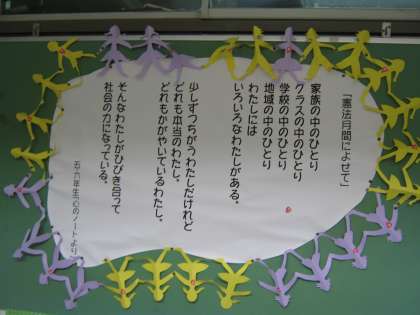 「憲法月間によせて」
家族の中のひとり
クラスの中のひとり
学校の中のひとり
地域の中のひとり
わたしには
いろいろなわたしがある。
少しずつちがうわたしだけれど
どれも本当のわたし。
どれもかがやいているわたし。
そんなわたしがひびき合って
社会の力になっている。
五・六年生「心のノートより」